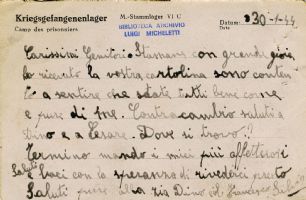 Kriegsgefangenenlager
Camp des prisonniers
M.-Stammlager VI C
BIBLIOTECA ARCHIVIO
LUIGI MICHELETTI
Datum: 30-1-44
Carissimi Genitori Stamani con grande gioia
ho ricevuto la vostra cartolina sono conten
to a sentire che state tutti bene come
e pure di me. Contro cambio saluti a
Dino e a Cesare. Dove si trova?
Termino mando i miei più affettuosi
Saluti e baci con la speranza di rivederci presto
Saluti pure alla zia Dina
Francesco